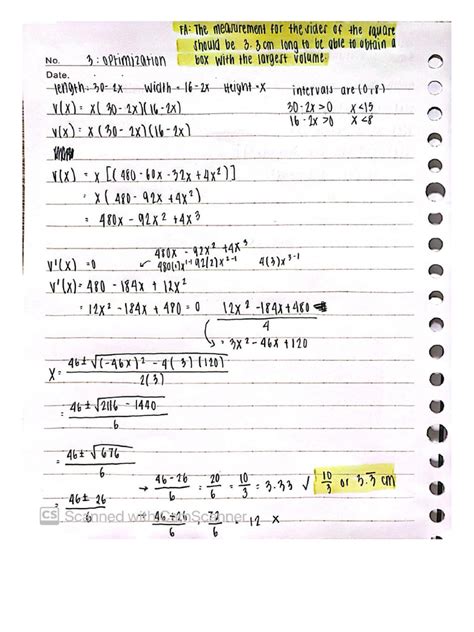 FA: The measurement for the sides of the square
should be 3.3cm long to be able to obtain a
box with the largest volume.
No. 3: Optimization
Date.
length: 30-2x width = 16-2x Height = x intervals are (0,8)
V(x) = x(30-2x)(16-2x) 30-2x>0 x<15
V(x) = x(30-2x)(16-2x) 16-2x>0 x<8
V(x) = x[(480-60x-32x+4x²)]
= x(480-92x+4x²)
= 480x-92x²+4x³
480x - 92x² + 4x³
V'(x) = 0 ↙ 480(1)x¹⁻¹ 92(2)x²⁻¹ 4(3)x³⁻¹
V'(x) = 480 - 184x + 12x²
= 12x² - 184x + 480 = 0 12x² - 184x + 480
4
= 3x² - 46x + 120
x = 46 ± √(-46x)² - 4(3)(120)
2(3)
= 46 ± √2116 - 1440
6
= 46 ± √676
6
→ 46-26 = 20 = 10 = 3.33 √ 10 or 3.3̅ cm
6 6 3 3
= 46 ± 26
6
46+26 = 72 = 12 x
6 6
CS Scanned with CamScanner